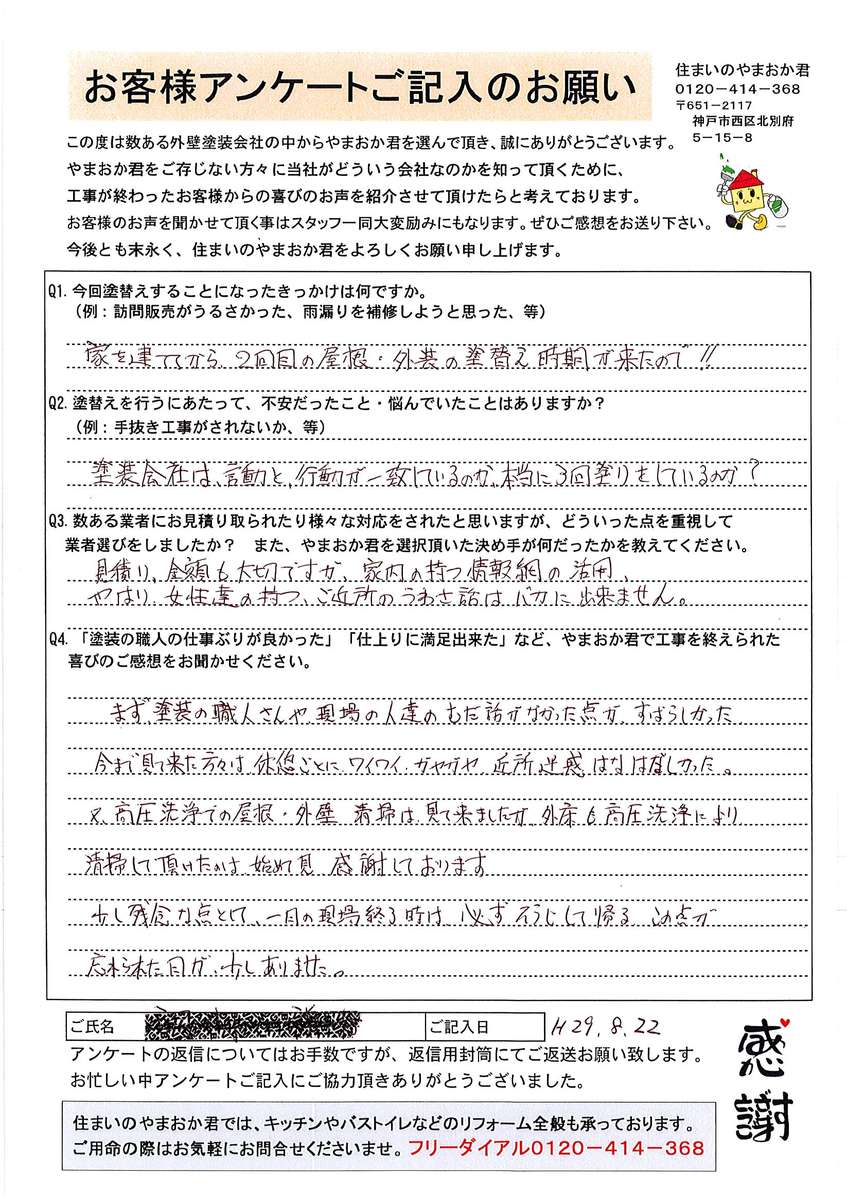 お客様アンケートご記入のお願い
住まいのやまおか君
0120－414－368
〒651－2117
神戸市西区北別府
5－15－8
この度は数ある外壁塗装会社の中からやまおか君を選んで頂き、誠にありがとうございます。
やまおか君をご存じない方々に当社がどういう会社なのかを知って頂くために、
工事が終わったお客様からの喜びのお声を紹介させて頂けたらと考えております。
お客様のお声を聞かせて頂く事はスタッフ一同大変励みにもなります。ぜひご感想をお送り下さい。
今後とも末永く、住まいのやまおか君をよろしくお願い申し上げます。
Q1. 今回塗替えすることになったきっかけは何ですか。
（例：訪問販売がうるさかった、雨漏りを補修しようと思った、等）
家を建ててから、2回目の屋根・外装の塗替え時期が来たので!!
Q2. 塗替えを行うにあたって、不安だったこと・悩んでいたことはありますか？
（例：手抜き工事がされないか、等）
塗装会社は、言動と、行動が一致しているのか、本当に3回塗りをしているのか？
Q3. 数ある業者にお見積り取られたり様々な対応をされたと思いますが、どういった点を重視して
業者選びをしましたか？　また、やまおか君を選択頂いた決め手が何だったかを教えてください。
見積り、金額も大切ですが、家内の持つ情報網の活用、
やはり、女性達の持つ、ご近所のうわさ話はバカに出来ません。
Q4. 「塗装の職人の仕事ぶりが良かった」「仕上りに満足出来た」など、やまおか君で工事を終えられた
喜びのご感想をお聞かせください。
まず、塗装の職人さんや、現場の人達のむだ話がなかった点が、すばらしかった
今まで見て来た方々は、休憩ごとに、ワイワイ、ガヤガヤ、近所迷惑はなはなしかった。
又、高圧洗浄での屋根・外壁 清掃は、見て来ましたが、外床も高圧洗浄により
清掃して頂けたのは、始めて見 感謝しております
少し残念な点として、一日の現場終る時は 必ずそうじして帰る この点が
忘れられた日が、少しありました。
ご氏名
ご記入日
H29.8.22
アンケートの返信についてはお手数ですが、返信用封筒にてご返送お願い致します。
お忙しい中アンケートご記入にご協力頂きありがとうございました。
感謝
かん
ござます
住まいのやまおか君では、キッチンやバストイレなどのリフォーム全般も承っております。
ご用命の際はお気軽にお問合せくださいませ。フリーダイアル0120－414－368